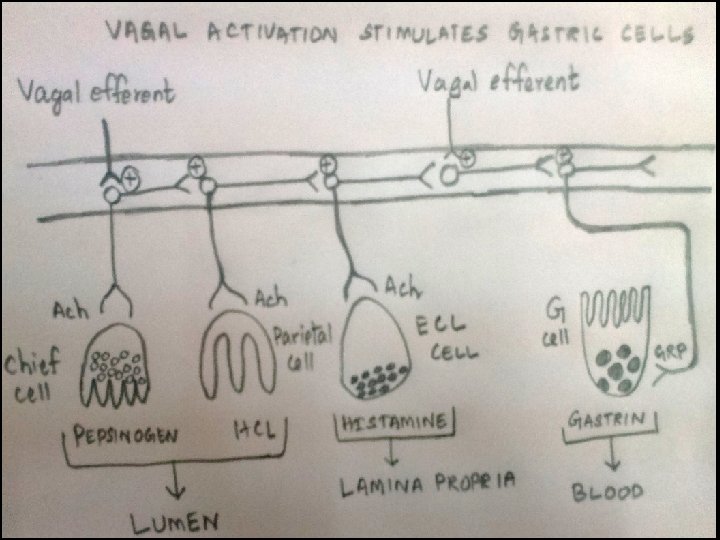 VAGAL ACTIVATION STIMULATES GASTRIC CELLS
Vagal efferent
Vagal efferent
+
+
+
+
+
Ach
Ach
Ach
Chief cell
Parietal cell
ECL CELL
G cell
GRP
PEPSINOGEN
HCL
HISTAMINE
GASTRIN
LUMEN
LAMINA PROPRIA
BLOOD